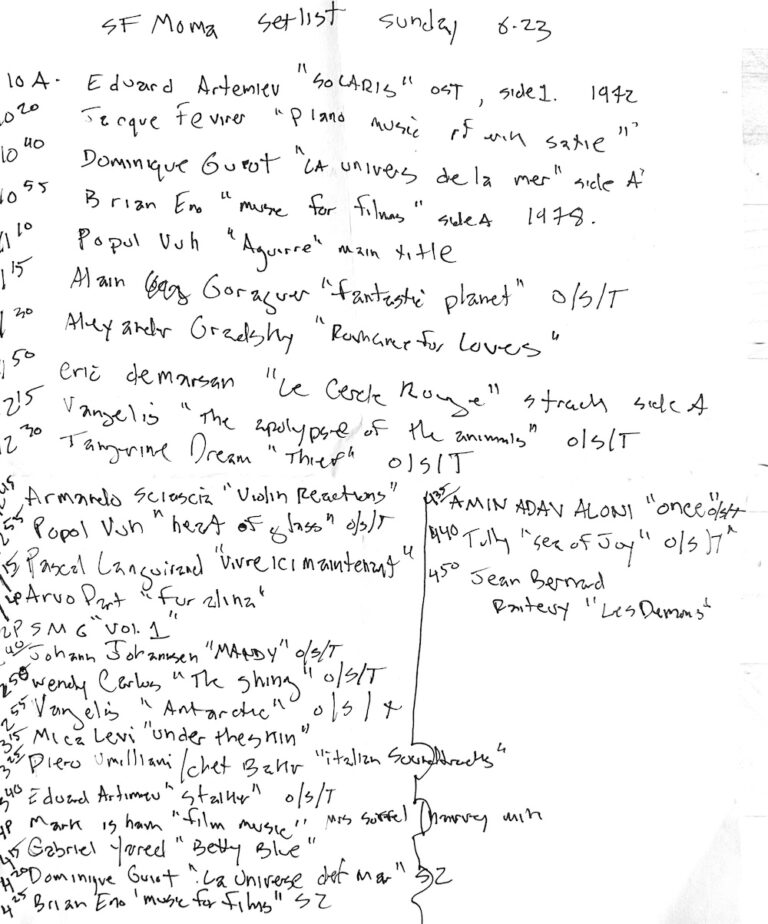 SF Moma setlist sunday 6.23
10 A. Eduard Artemiev "SOLARIS" OST, side 1. 1972
10 20 Jacque Fevirer "Piano music of erik satie"
10 40 Dominique Guiot "LA univers de la mer" side A
10 55 Brian Eno "music for films" side A 1978.
11 10 Popul Vuh "Aguirre" main title
15 Alain Goraguer "fantastic planet" O/S/T
30 Alexander Gradsky "Romance for Loves"
50 eric demarsan "Le Cercle Rouge" strack side A
2 15 Vangelis "The apolypse of the animals" O/S/T
2 30 Tangerine Dream "Thief" O/S/T
45 Armando Sciascia "Violin Reactions"
55 Popol Vuh "heart of glass" O/S/T
15 Pascal Languirand "Vivre ici maintenant"
Arvo Part "Fur alina"
2P SMG "Vol. 1"
40 Johann Johannsen "MANDY" O/S/T
2 50 Wendy Carlos "The shing" O/S/T
2 55 Vangelis "Antarctic" O/S/T
3 15 Mica Levi "under the skin"
3 25 Piero Umilliani / Chet Baker "italian Soundtracks"
3 40 Eduard Artimev "Stalker" O/S/T
4P Mark is ham "film music" Mrs Soffel
4 15 Gabriel Yared "Betty Blue"
4 20 Dominique Guiot "La Universe def Mar" S2
4 25 Brian Eno "music for films" S2
4 35 AMIN ADAV ALONI "once" O/S/T
4 40 Tully "sea of Joy" O/S/T
4 50 Jean Bernard
Rantevy "Les Demons"